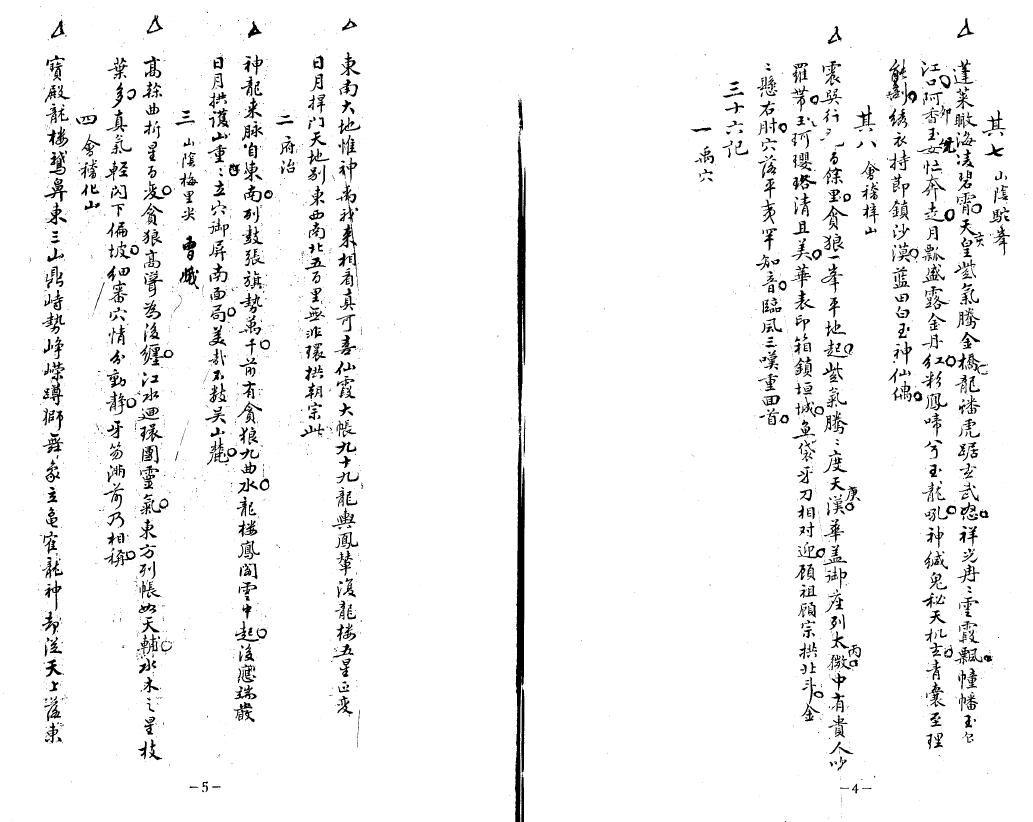 其七 山陰駝峯
蓬萊瞰海凌碧霄天皇紫氣騰金橋龍蟠虎踞玄武忽祥光冉々雲霞飄幢幡玉
江口阿香玉女忙奔走月瓢盛露金丹紅粉鳳啼兮玉龍吼神緘鬼秘天机玄青囊至理
繡衣持節鎮沙漠藍田白玉神仙偶
其八 會稽梓山
震巽行 百餘里貪狼一峯平地起紫氣騰々度天漢華盖御座列太微中有貴人
羅帶玉珂瓔珞清且美華表印箱鎮垣城魚袋牙刀相对迎顧祖顧宗拱北斗金
々懸右肘穴落平夷罕知音臨风三嘆重回首
三十六記
一 禹穴
東南大地惟神禹我來相看真可喜仙霞大帳九十九龍輿鳳輦復龍楼五星正変
日月捍門天地别東西南北五百里無非環拱朝宗此
二 府治
神龍来脉自東南列鼓張旗勢萬千前有貪狼九曲水龍楼鳳閣雲中起後應端嚴
日月拱護山重々立穴御屏南面局美哉不数吴山麓
三 山陰梅里尖 曹娥
高餘曲折星百变貪狼高聳為後纏江水迴環團靈氣東方列帳如天輔水木之星枝
葉多真氣輕閃下偏坡細審穴情分動静牙笏满前乃相稱
四 會稽化山
寶殿龍楼鵞鼻東三山鼎峙勢峥嶸蹲獅舞象立龜雀龍神却從天上落東
庚
丙
亥
-5-
-4-